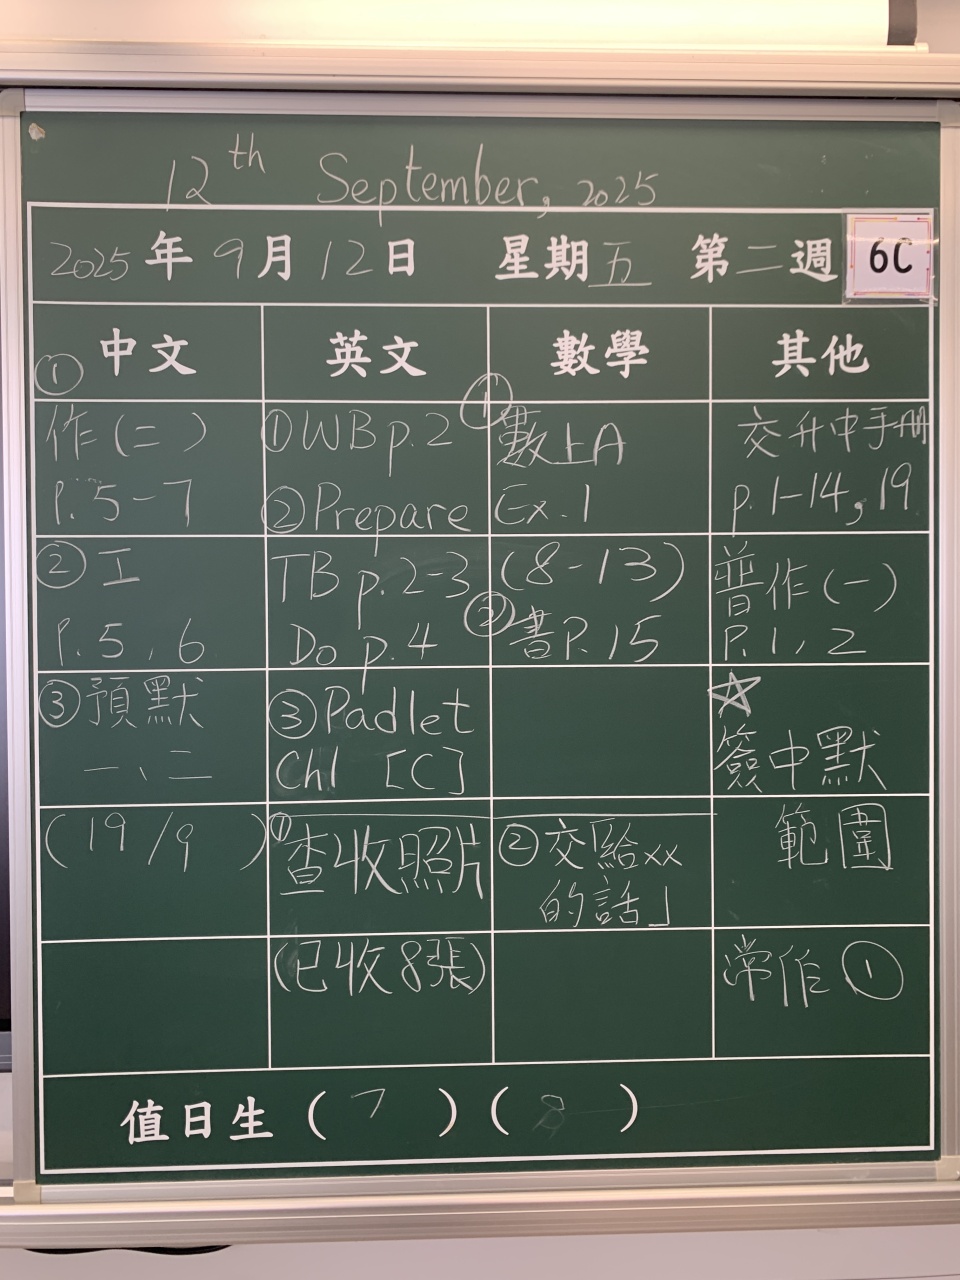 12th September, 2025
2025年9月12日 星期五 第二週 6C
中文 英文 數學 其他
①
作(二)
P.5-7
② 工
P.5,6
③預默
一、二
(19/9)
①WB p.2
②Prepare
TB p.2-3
Do p.4
③Padlet
Ch1 [C]
①查收照片
(已收8張)
①
數上A
Ex.1
(8-13)
②書P.15
②交「給xx
的話」
交升中手冊
p.1-14,19
普作(一)
P.1,2
☆
簽中默
範圍
常作①
值日生(7)(8)